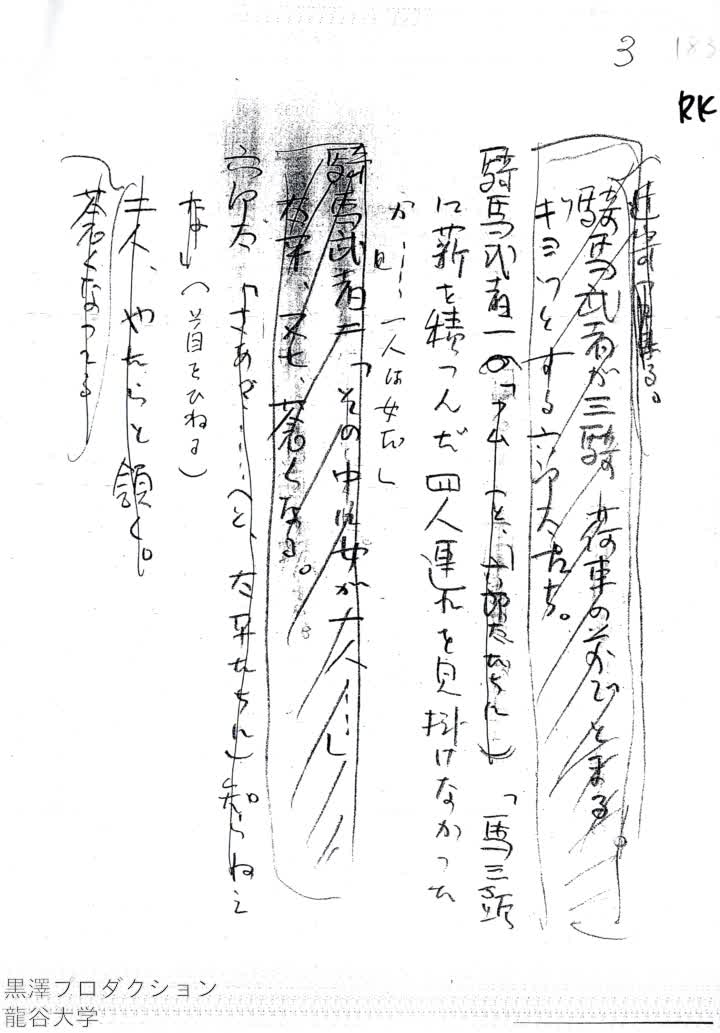 3
183
RK
騎馬武者が三騎、荷車の前でとまる。
ギョッとする六郎太たち。
騎馬武者一の「フム(と、六郎太たちに)「馬三頭
に薪を積んだ四人連れを見掛けなかった
か……一人は女だ」
騎馬武者二「その中に女が一人……」
太平、又七、蒼くなる。
六郎太「さあ……(と、太平たちに)知らねえ
な」(首をひねる)
二人、やたらと頷く。
蒼くなってる
黒澤プロダクション
龍谷大学